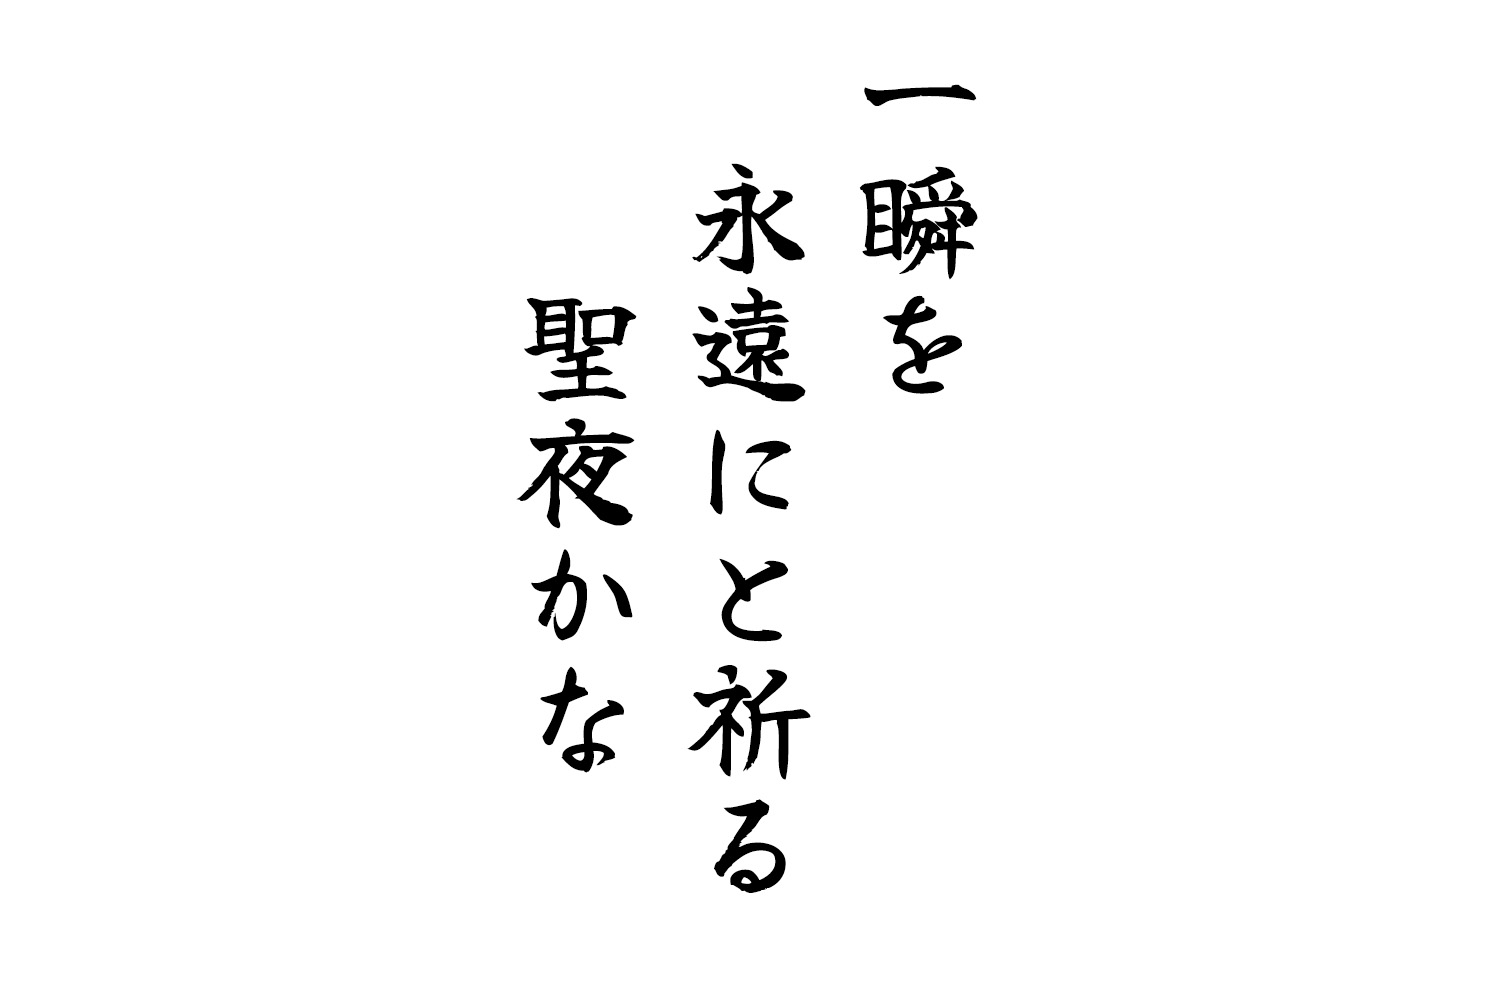 一瞬を
永遠にと祈る
聖夜かな